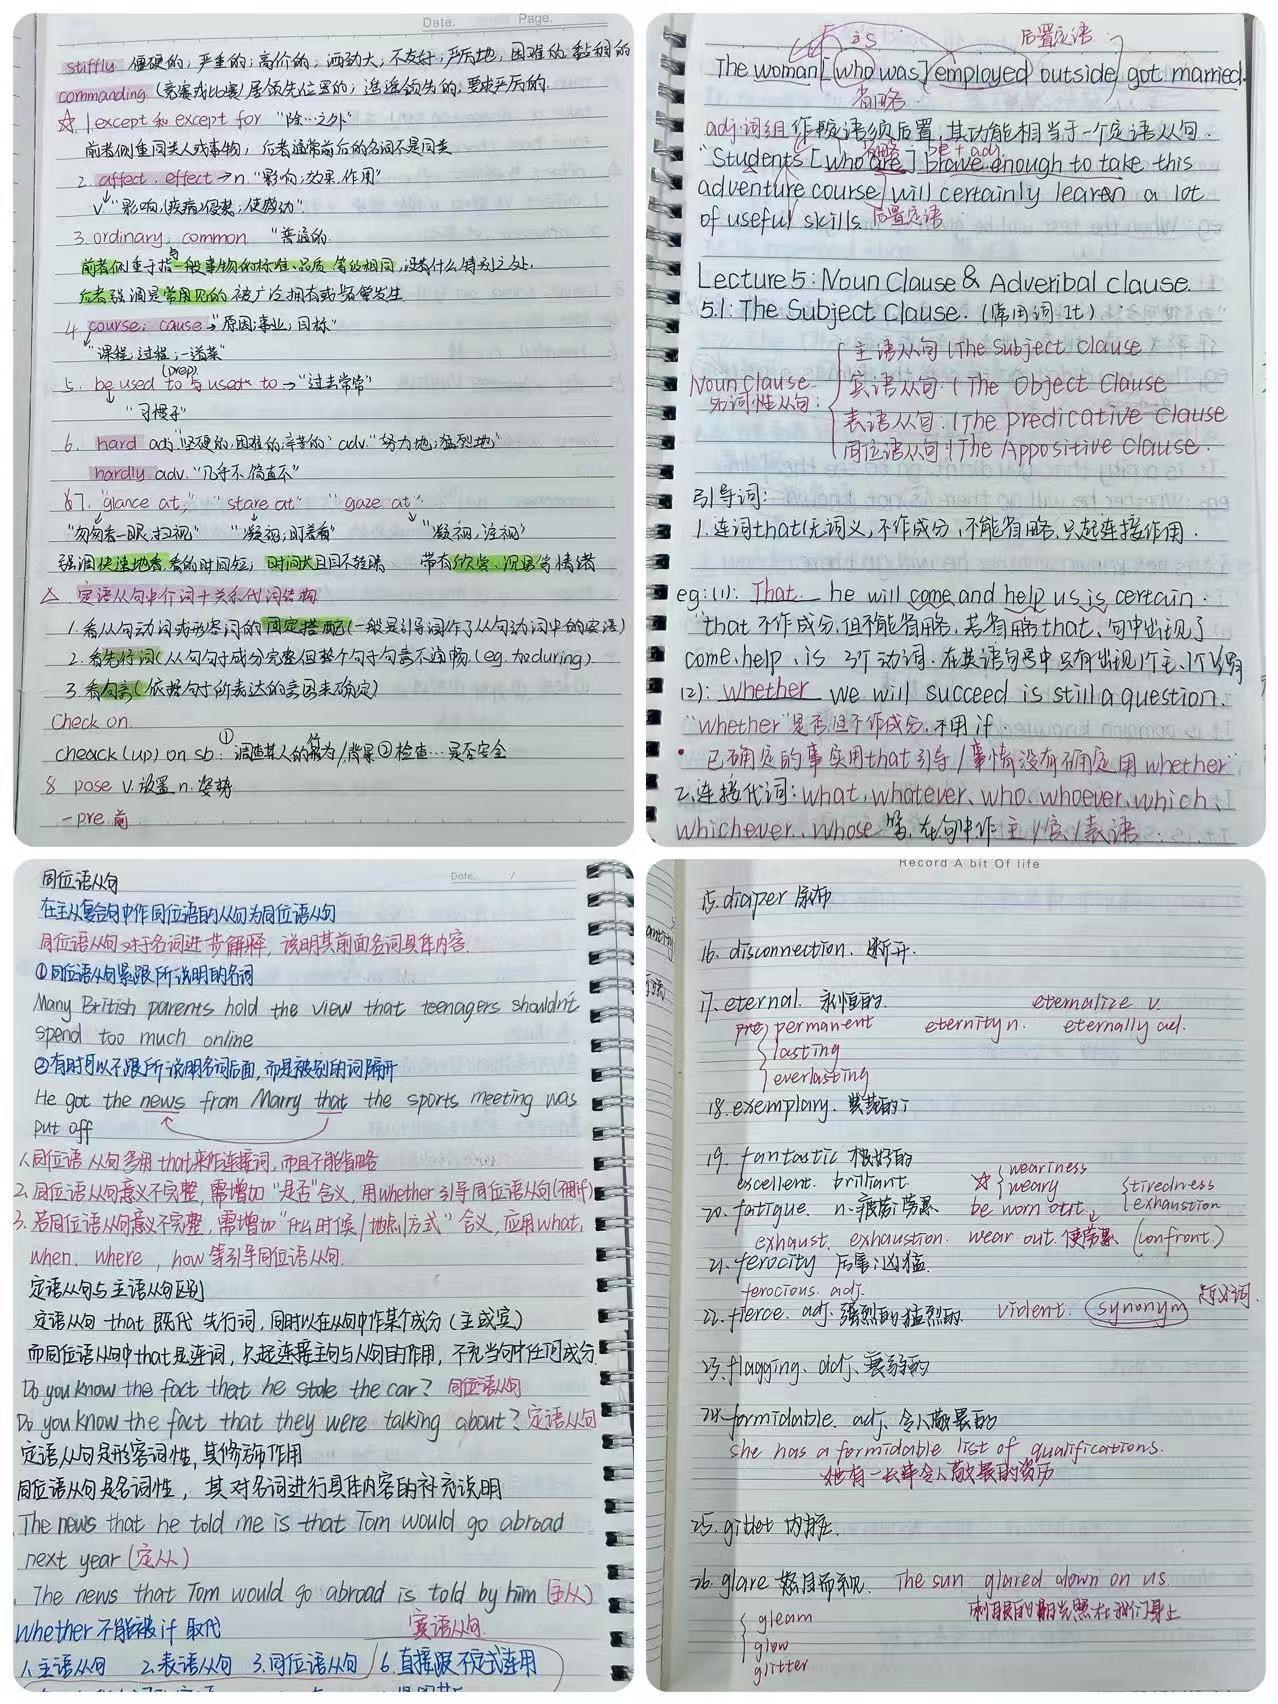 Date. Page.
stiffly 僵硬的；严重的；高价的；酒劲大；不友好；严厉地；困难的；黏稠的
commanding (竞赛或比赛)居领先位置的；遥遥领先的；要求严厉的.
☆ 1. except 和 except for "除…之外"
前者侧重同类人或事物，后者通常前后的名词不是同类
2. affect. effect → n. "影响；效果，作用"
v. "影响，(疾病)侵袭；使感动"
3. ordinary; common "普通的.
前者侧重于指与一般事物的标准、品质 等级相同，没有什么特别之处.
后者强调是常用见的 被广泛拥有或频繁发生
4. course; cause → "原因；事业；目标"
"课程；过程；一道菜"
(prep)
5. be used to 与 used to → "过去常常"
"习惯于"
6. hard adj. "坚硬的；困难的；辛苦的" adv. "努力地；猛烈地"
hardly adv. "几乎不.简直不"
☆7. "glance at," "stare at" "gaze at".
"匆匆看一眼，扫视" "凝视；盯着看" "凝视，注视"
强调快速地看，看的时间短； 时间长且目不转睛 带有欣赏、沉思等情绪
△ 定语从句中介词+关系代词结构
1. 看从句动词或形容词的固定搭配(一般是引导词作了从句动词中的宾语)
2. 看先行词(从句句子成分完整但整个句子句意不通畅.(eg.加during)
3. 看句意(依据句子所表达的意图来确定)
Check on.
cheack (up) on sb. ① 调查某人的行为/背景 ② 检查…是否安全
8 pose v.放置 n.姿势
-pre.前
主S 后置定语
The woman [who was] employed outside got married.
省略.
adj.词组作定语须后置，其功能相当于一个定语从句.
省略 be + adj
"Students [who are] brave enough to take this
adventure course will certainly learen a lot
of useful skills. 后置定语
Lecture 5: Noun Clause & Adveribal clause.
5.1: The Subject Clause. (常用词 It)
主语从句 (The Subject clause
Noun Clause 宾语从句: (The Object Clause
名词性从句: 表语从句: (The predicative Clause
同位语从句 (The Appositive Clause.
引导词:
1. 连词that (无词义，不作成分，不能省略，只起连接作用.
eg: (1): That he will come and help us is certain.
"that 不作成分，但不能省略，若省略that，句中出现了
come、help、is 3个动词. 在英语句子中只有出现1个主、1个谓
(2): whether we will succeed is still a question.
"whether" 是否 但不作成分，不用 if.
• 已确定的事实用that引导/事情没有确定用whether
2. 连接代词: what、whatever、who、whoever、which、
whichever、whose 等，在句中作 主/宾/表语.
Date. /
同位语从句
在主从复合句中作同位语的从句为同位语从句
同位语从句对于名词进一步解释，说明其前面名词具体内容.
①同位语从句紧跟所说明的名词
Many British parents hold the view that teenagers shouldn't
spend too much online
②有时可以不跟所说明名词后面，而是被别的词隔开
He got the news from Marry that the sports meeting was
put off
1.同位语从句多用that来作连接词，而且不能省略
2. 同位语从句意义不完整，需增加"是否"含义，用whether引导同位语从句(不用if)
3. 若同位语从句意义不完整，需增加"什么时候/地点/方式"含义，应用what，
when、where，how等引导同位语从句.
定语从句与主语从句区别
定语从句 that 既代 先行词，同时以在从句中作某个成分 (主或宾)
而同位语从句中that是连词，只起连接主句与从句的作用，不充当句中任何成分
Do you know the fact that he stole the car? 同位语从句
Do you know the fact that they were talking about? 定语从句
定语从句是形容词性，其修饰作用
同位语从句是名词性，其对名词进行具体内容的补充说明
The news that he told me is that Tom would go abroad
next year (定从)
The news that Tom would go abroad is told by him (主从)
Whether 不能被 if 取代 宾语从句.
1. 主语从句 2. 表语从句 3. 同位语从句 6. 直接跟不定式连用
Record A bit Of life
15. diaper 尿布
16. disconnection. 断开.
17. eternal. 永恒的. eternalize v.
permanent eternity n. eternally ad.
lasting
everlasting
18. exemplary. 典范的
19. fantastic 极好的 weariness
excellent. brilliant. ☆ weary tiredness
20. fatigue. n. 疲劳 劳累 be worn out. exhaustion
exhaust. exhaustion. wear out. 使劳累 (confront.)
21. ferocity 厉害；凶猛.
ferocious. adj.
22. fierce. adj. 强烈的 猛烈的. violent. synonym 近义词.
23. flagging. adj. 衰弱的
24. formidable. adj. 令人敬畏的
she has a formidable list of qualifications.
她有一长串令人敬畏的资历
25. giblet 内脏.
26. glare 怒目而视. The sun glared down on us.
gleam 刺眼的阳光照在我们身上
glow
glitter